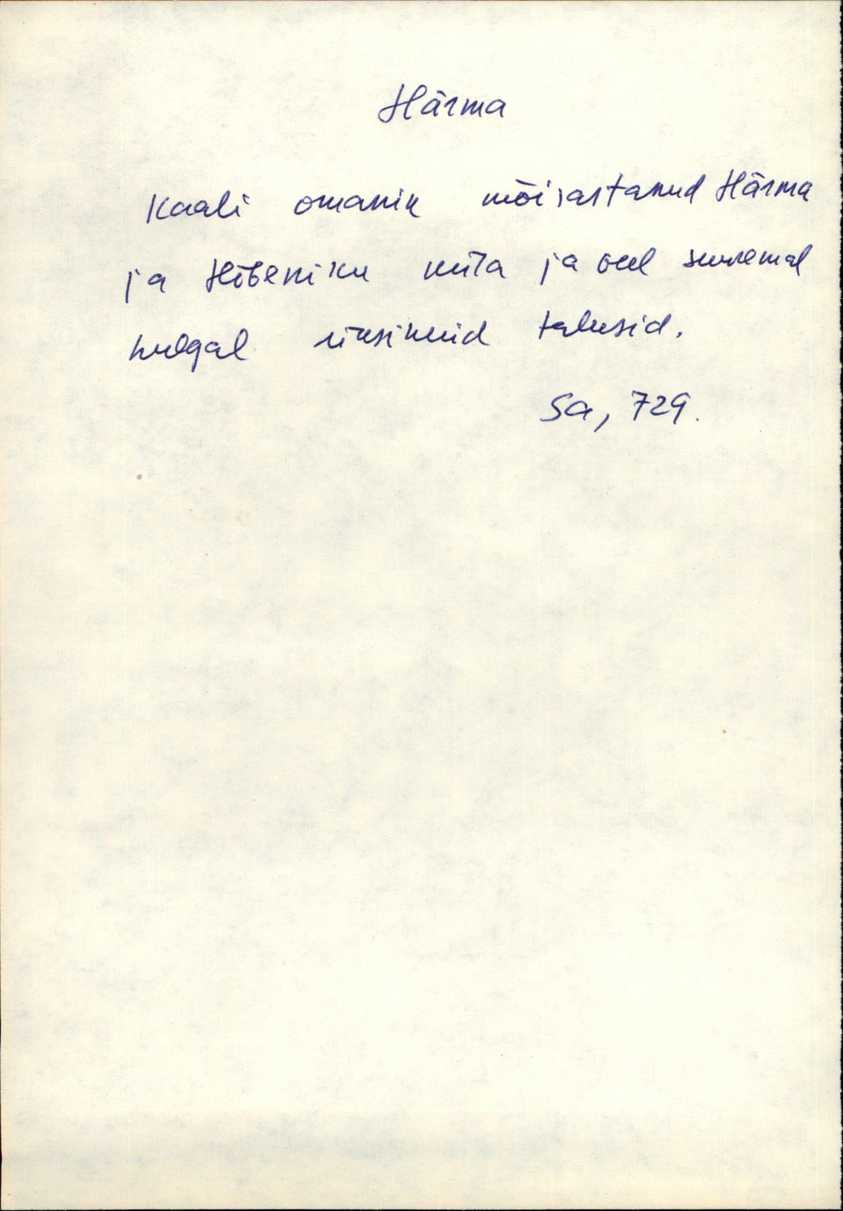 Härma
Kaali omanik mõisastanud Härma
ja Hõbeniku küla ja veel suuremal
hulgal üksikuid talusid.
Sa, 729.